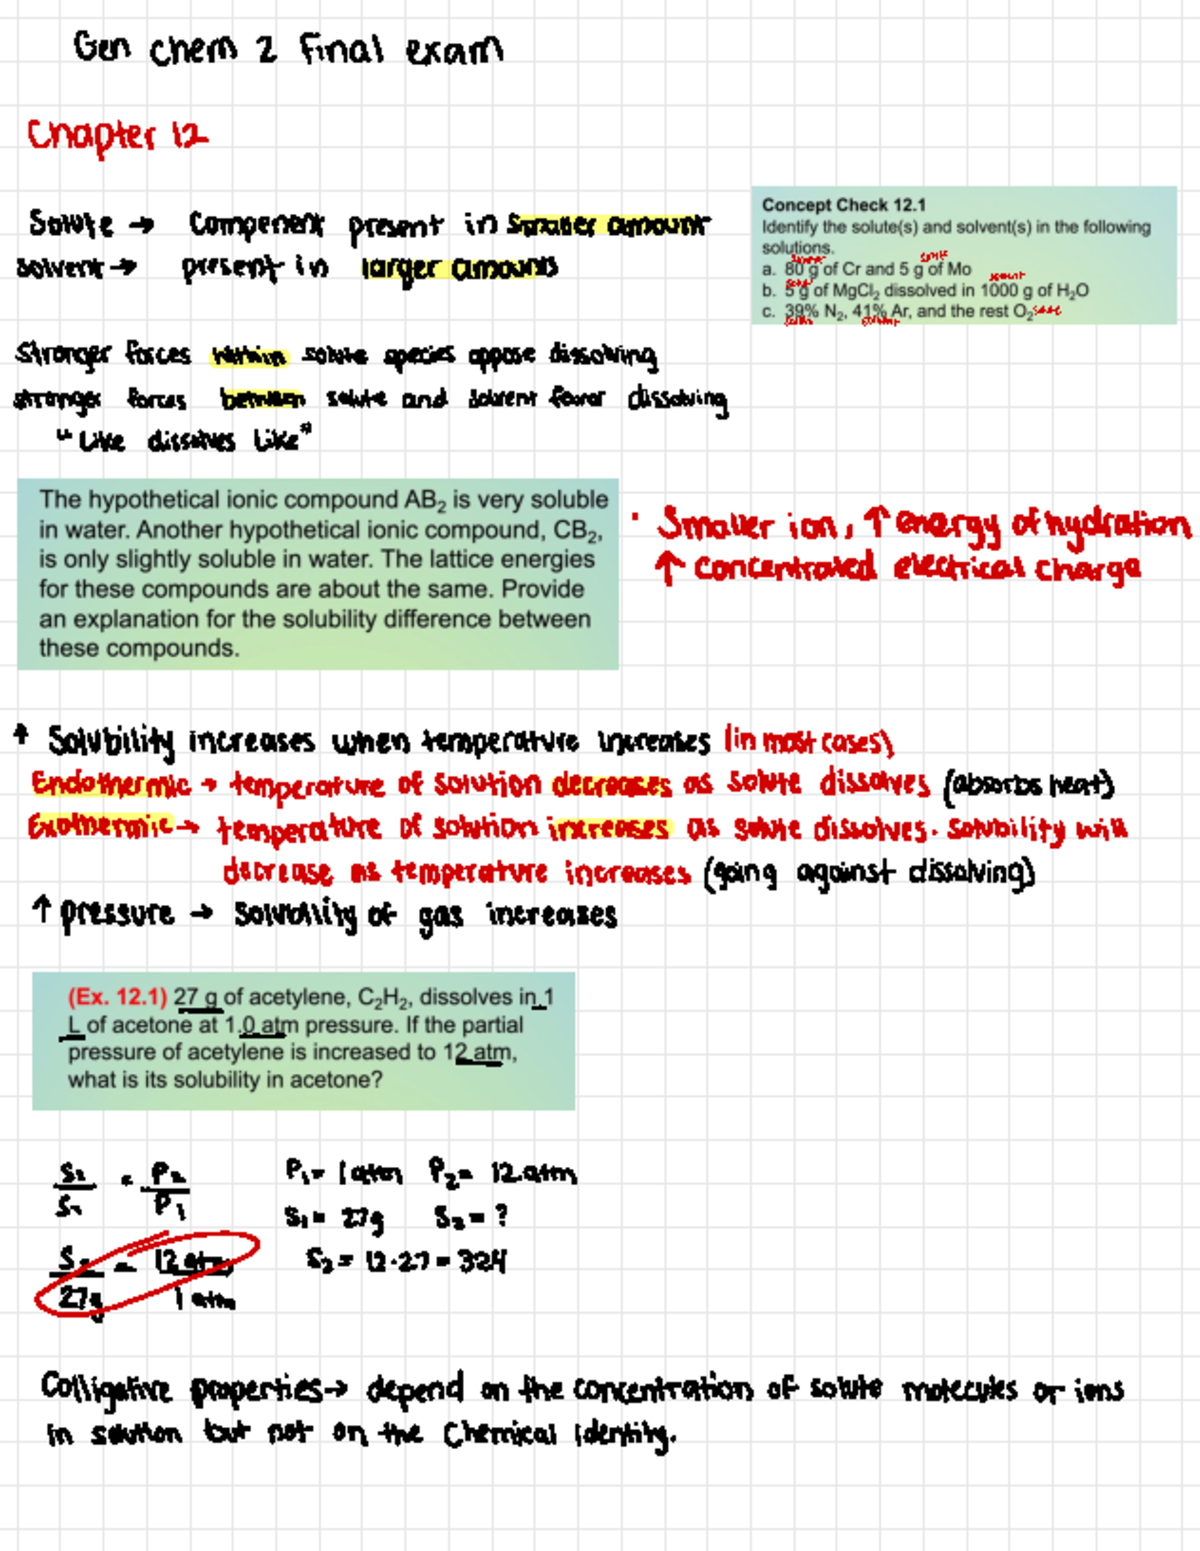 Gen chem 2 Final exam
Chapter 12
Solute → Component present in smaller amount
solvent → present in larger amounts
Concept Check 12.1
Identify the solute(s) and solvent(s) in the following
solutions.
a. 80 g of Cr and 5 g of Mo
b. 5 g of MgCl₂ dissolved in 1000 g of H₂O
c. 39% N₂, 41% Ar, and the rest O₂
Stronger forces within solute species oppose dissolving
stronger forces between solute and solvent favor dissolving
"Like dissolves like"
The hypothetical ionic compound AB₂ is very soluble
in water. Another hypothetical ionic compound, CB₂,
is only slightly soluble in water. The lattice energies
for these compounds are about the same. Provide
an explanation for the solubility difference between
these compounds.
· Smaller ion, ↑ energy of hydration
↑ concentrated electrical charge
↑ Solubility increases when temperature increases (in most cases)
Endothermic → temperature of solution decreases as solute dissolves (absorbs heat)
Exothermic → temperature of solution increases as solute dissolves. Solubility will
decrease as temperature increases (going against dissolving)
↑ pressure → solubility of gas increases
(Ex. 12.1) 27 g of acetylene, C₂H₂, dissolves in 1
L of acetone at 1.0 atm pressure. If the partial
pressure of acetylene is increased to 12 atm,
what is its solubility in acetone?
S₂/S₁ = P₂/P₁
P₁ = 1 atm P₂ = 12 atm
S₁ = 27g S₂ = ?
S₂/27g = 12 atm/1 atm
S₂ = 12·27 = 324
Colligative properties → depend on the concentration of solute molecules or ions
in solution but not on the chemical identity.